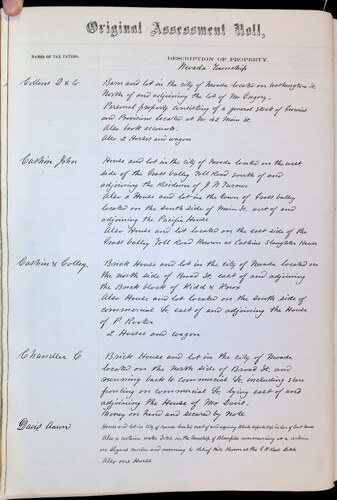 Original Assessment Roll,
NAMES OF TAX PAYERS. DESCRIPTION OF PROPERTY.
Nevada Township
Collins D & Co Barn and lot in the city of Nevada located on Washington St
North of and adjoining the lot of Mr
Personal property consisting of a general stock of Groceries
and Provisions located at No 42 Main St.
Also book accounts.
Also 2 Horses and wagon
Cashin John House and lot in the city of Nevada located on the east
side of the Grass Valley Toll Road south of and
adjoining the Residence of J N Turner
Also a House and lot in the town of Grass Valley
located on the south side of Main St. east of and
adjoining the Pacific House
Also House and lot located on the east side of the
Grass Valley Toll Road Known as Cashins Slaughter House
Cashin & Colley. Brick House and lot in the city of Nevada located on
the north side of Broad St, east of and adjoining
the Brick block of Kidd & Knox
Also House and lot located on the south side of
Commercial St east of and adjoining the House
of P.
2 Horses and wagon
Chandler C Brick House and lot in the city of Nevada
located on the north side of Broad St, and
running back to Commercial St, including store
fronting on Commercial St, lying east of and
adjoining the House of Mrs Davis.
Money on hand and secured by Note
Davis Aaron House and lot in city of Nevada located east of and adjoining
Also a certain water ditch in the township of Bloomfield commencing at a
and running to
Also one Horse